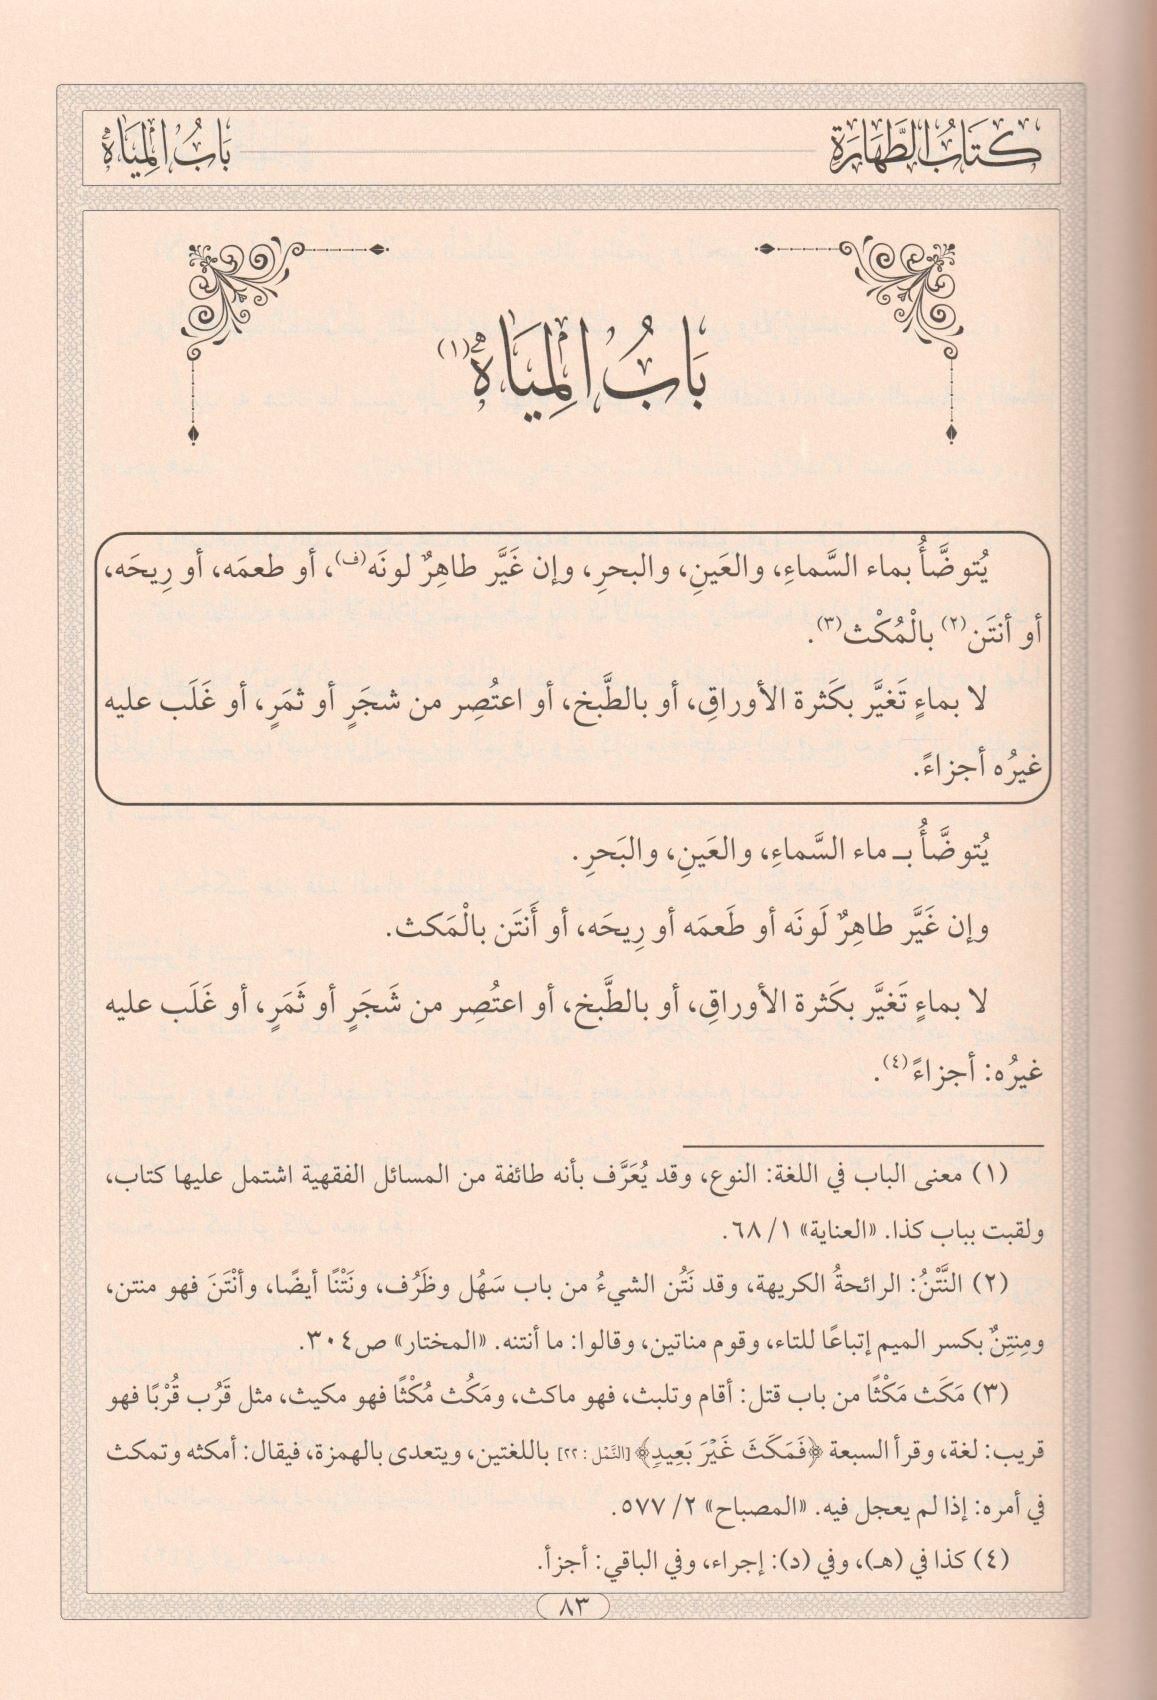 كتاب الطَّهارة
بَابُ المِيَاه
بَابُ المِيَاه(١)
يُتوضَّأُ بماء السَّماءِ، والعَينِ، والبحرِ، وإن غَيَّر طاهِرٌ لونَه(ف)، أو طعمَه، أو رِيحَه،
أو أنتَن(٢) بالْمُكْث(٣).
لا بماءٍ تَغيَّر بكَثرة الأوراقِ، أو بالطَّبخ، أو اعتُصِر من شجَرٍ أو ثمَرٍ، أو غَلَب عليه
غيرُه أجزاءً.
يُتوضَّأُ بـ ماء السَّماءِ، والعَينِ، والبَحرِ.
وإن غَيَّر طاهِرٌ لَونَه أو طَعمَه أو رِيحَه، أو أَنتَن بالْمَكث.
لا بماءٍ تَغيَّر بكَثرة الأوراقِ، أو بالطَّبخ، أو اعتُصِر من شَجَرٍ أو ثَمَرٍ، أو غَلَب عليه
غيرُه: أجزاءً(٤).
(١) معنى الباب في اللغة: النوع، وقد يُعَرَّف بأنه طائفة من المسائل الفقهية اشتمل عليها كتاب،
ولقبت بباب كذا. «العناية» ١/ ٦٨.
(٢) النَّتْنُ: الرائحةُ الكريهة، وقد نَتُن الشيءُ من باب سَهُل وظَرُف، ونَتْنًا أيضًا، وأنْتَنَ فهو منتن،
ومِنتِنٌ بكسر الميم إتباعًا للتاء، وقوم مناتين، وقالوا: ما أنتنه. «المختار» ص٣٠٤.
(٣) مَكَث مَكْثًا من باب قتل: أقام وتلبث، فهو ماكث، ومَكُث مُكْثًا فهو مكيث، مثل قَرُب قُرْبًا فهو
قريب: لغة، وقرأ السبعة ﴿فَمَكَثَ غَيْرَ بَعِيدٍ﴾ [النَّمْل: ٢٢] باللغتين، ويتعدى بالهمزة، فيقال: أمكثه وتمكث
في أمره: إذا لم يعجل فيه. «المصباح» ٢/ ٥٧٧.
(٤) كذا في (هـ)، وفي (د): إجراء، وفي الباقي: أجزأ.
٨٣